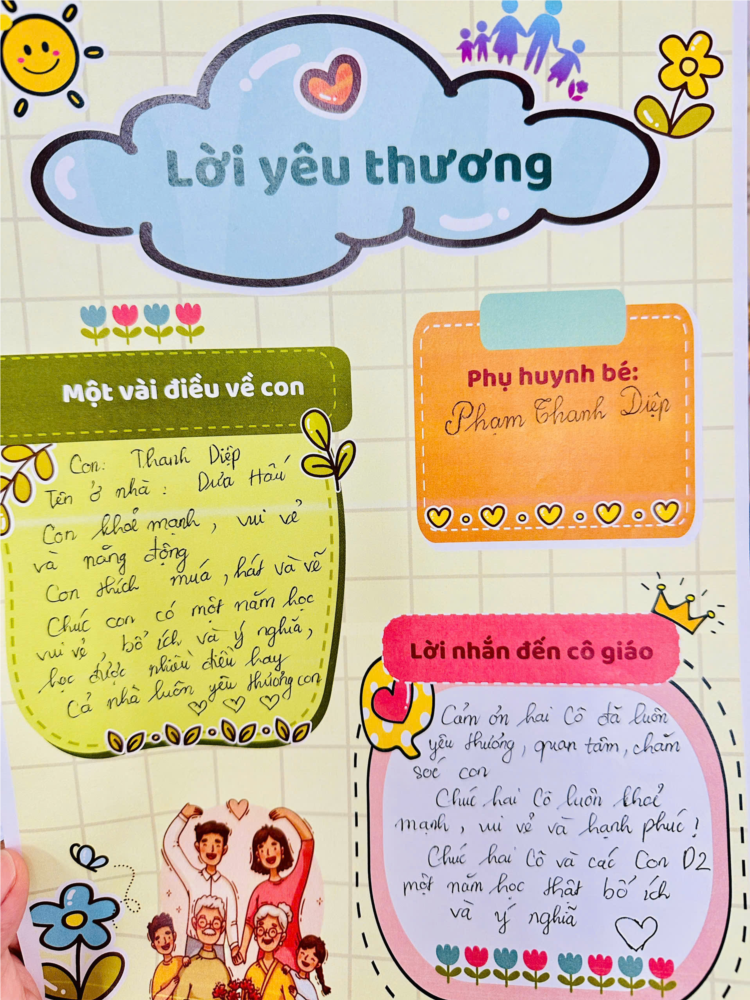 Lời yêu thương
Một vài điều về con
Con: Thanh Diệp
Tên ở nhà: Dưa Hấu
Con khoẻ mạnh, vui vẻ
và năng động
Con thích múa, hát và vẽ
Chúc con có một năm học
vui vẻ, bổ ích và ý nghĩa,
học được nhiều điều hay
Cả nhà luôn yêu thương con
Phụ huynh bé:
Phạm Thanh Diệp
Lời nhắn đến cô giáo
Cảm ơn hai Cô đã luôn
yêu thương, quan tâm, chăm
sóc con
Chúc hai Cô luôn khoẻ
mạnh, vui vẻ và hạnh phúc!
Chúc hai Cô và các Con D2
một năm học thật bổ ích
và ý nghĩa